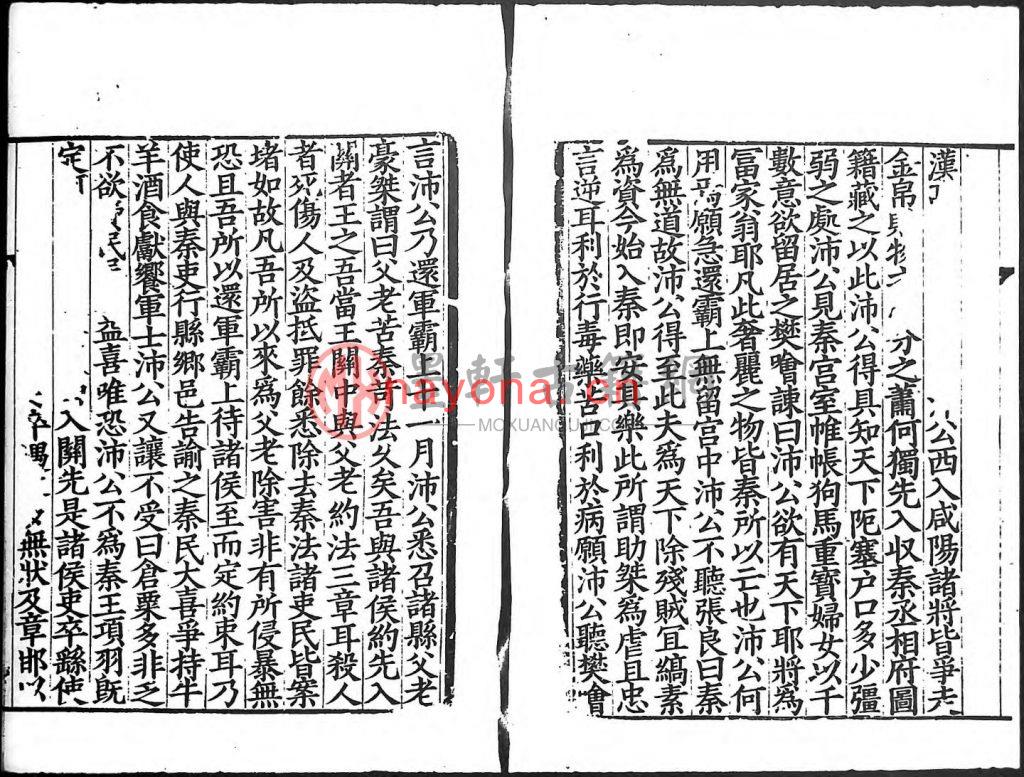 漢 公西入咸陽諸將皆爭走
金帛財物 分之蕭何獨先入収秦丞相府圖
籍藏之以此沛公得具知天下阨塞户口多少彊
弱之處沛公見秦宫室帷帳狗馬重寶婦女以千
數意欲留居之樊噲諫曰沛公欲有天下耶將爲
冨家翁耶凡此奢麗之物皆秦所以亡也沛公何
用焉願急還霸上無留宫中沛公不聽張良曰秦
爲無道故沛公得至此夫爲天下除殘賊宜縞素
爲資今始入秦即安其樂此所謂助桀爲虐且忠
言逆耳利於行毒藥苦口利於病願沛公聽樊噲
言沛公乃還軍霸上十一月沛公悉召諸縣父老
豪桀謂曰父老苦秦苛法久矣吾與諸侯約先入
關者王之吾當王關中與父老約法三章耳殺人
者死傷人及盗抵罪餘悉除去秦法諸吏民皆案
堵如故凡吾所以來爲父老除害非有所侵暴無
恐且吾所以還軍霸上待諸侯至而定約束耳乃
使人與秦吏行縣鄉邑告諭之秦民大喜爭持牛
羊酒食獻饗軍士沛公又讓不受曰倉粟多非乏
不欲 民 益喜唯恐沛公不爲秦王項羽既
定 入關先是諸侯吏卒繇使
卒遇 無狀及章邯以
墨軒古籍網
hayona.cn
MOXUANGUJI.COM